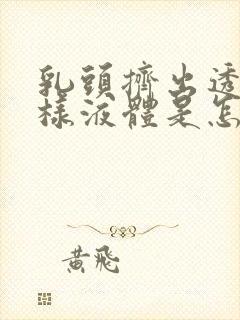 乳頭擠出透
樣液體是怎
黃飛